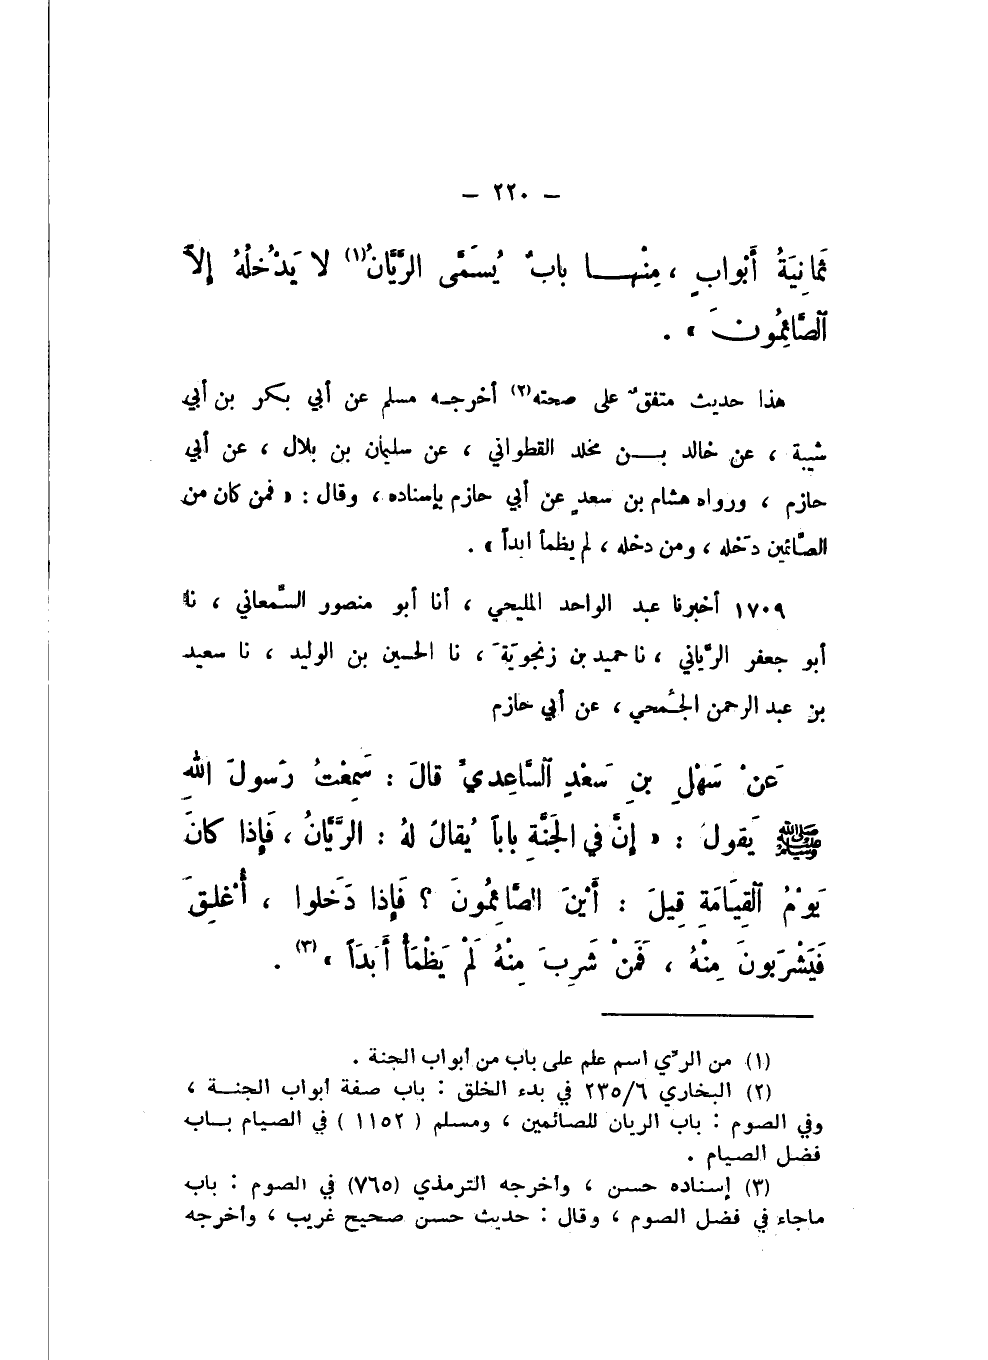 – ٢٢٠ –
ثَمانِيَةُ أَبْوابٍ ، مِنْهــــا بابٌ يُسَمَّى الرَّيَّانُ(١) لا يَدْخلُهُ إلاَّ
الصَّائِمُونَ » .
هذا حديث متفقٌ على صحته(٢) أخرجـه مسلم عن أبي بكر بن أبي
شيبة ، عن خالد بــن مخلد القطواني ، عن سليمان بن بلال ، عن أبي
حازم ، ورواه هشام بن سعدٍ عن أبي حازم بإسناده ، وقال : « فمن كان من
الصَّائمين دَخله ، ومن دخله ، لم يظمأ ابداً » .
١٧٠٩ أخبرنا عبد الواحد المليحي ، أنا أبو منصور السَّمعاني ، نا
أبو جعفر الرَّياني ، نا حميد بن زنجويَةَ ، نا الحسين بن الوليد ، نا سعيد
بن عبد الرحمن الجُمحي ، عن أبي حازم
عَنْ سَهْلِ بنِ سَعْدٍ السَّاعِديِّ قالَ : سَمِعْتُ رَسولَ اللهِ
ﷺ يَقولُ : « إنَّ في الجَنَّةِ باباً يُقالُ لهُ : الرَّيَّانُ ، فَإذا كانَ
يَوْمُ القِيَامَةِ قِيلَ : أَيْنَ الصَّائِمُونَ ؟ فَإذا دَخلوا ، أُغْلِقَ
فَيَشْرَبونَ مِنْهُ ، فَمَنْ شَرِبَ مِنْهُ لَمْ يَظْمَأْ أَبَداً »(٣) .
(١) من الرّي اسم علم على باب من أبواب الجنة .
(٢) البخاري ٢٣٥/٦ في بدء الخلق : باب صفة أبواب الجنــة ،
وفي الصوم : باب الريان للصائمين ، ومسلم ( ١١٥٢ ) في الصيام بــاب
فضل الصيام .
(٣) إسناده حسن ، وأخرجه الترمذي (٧٦٥) في الصوم : باب
ماجاء في فضل الصوم ، وقال : حديث حسن صحيح غريب ، وأخرجه